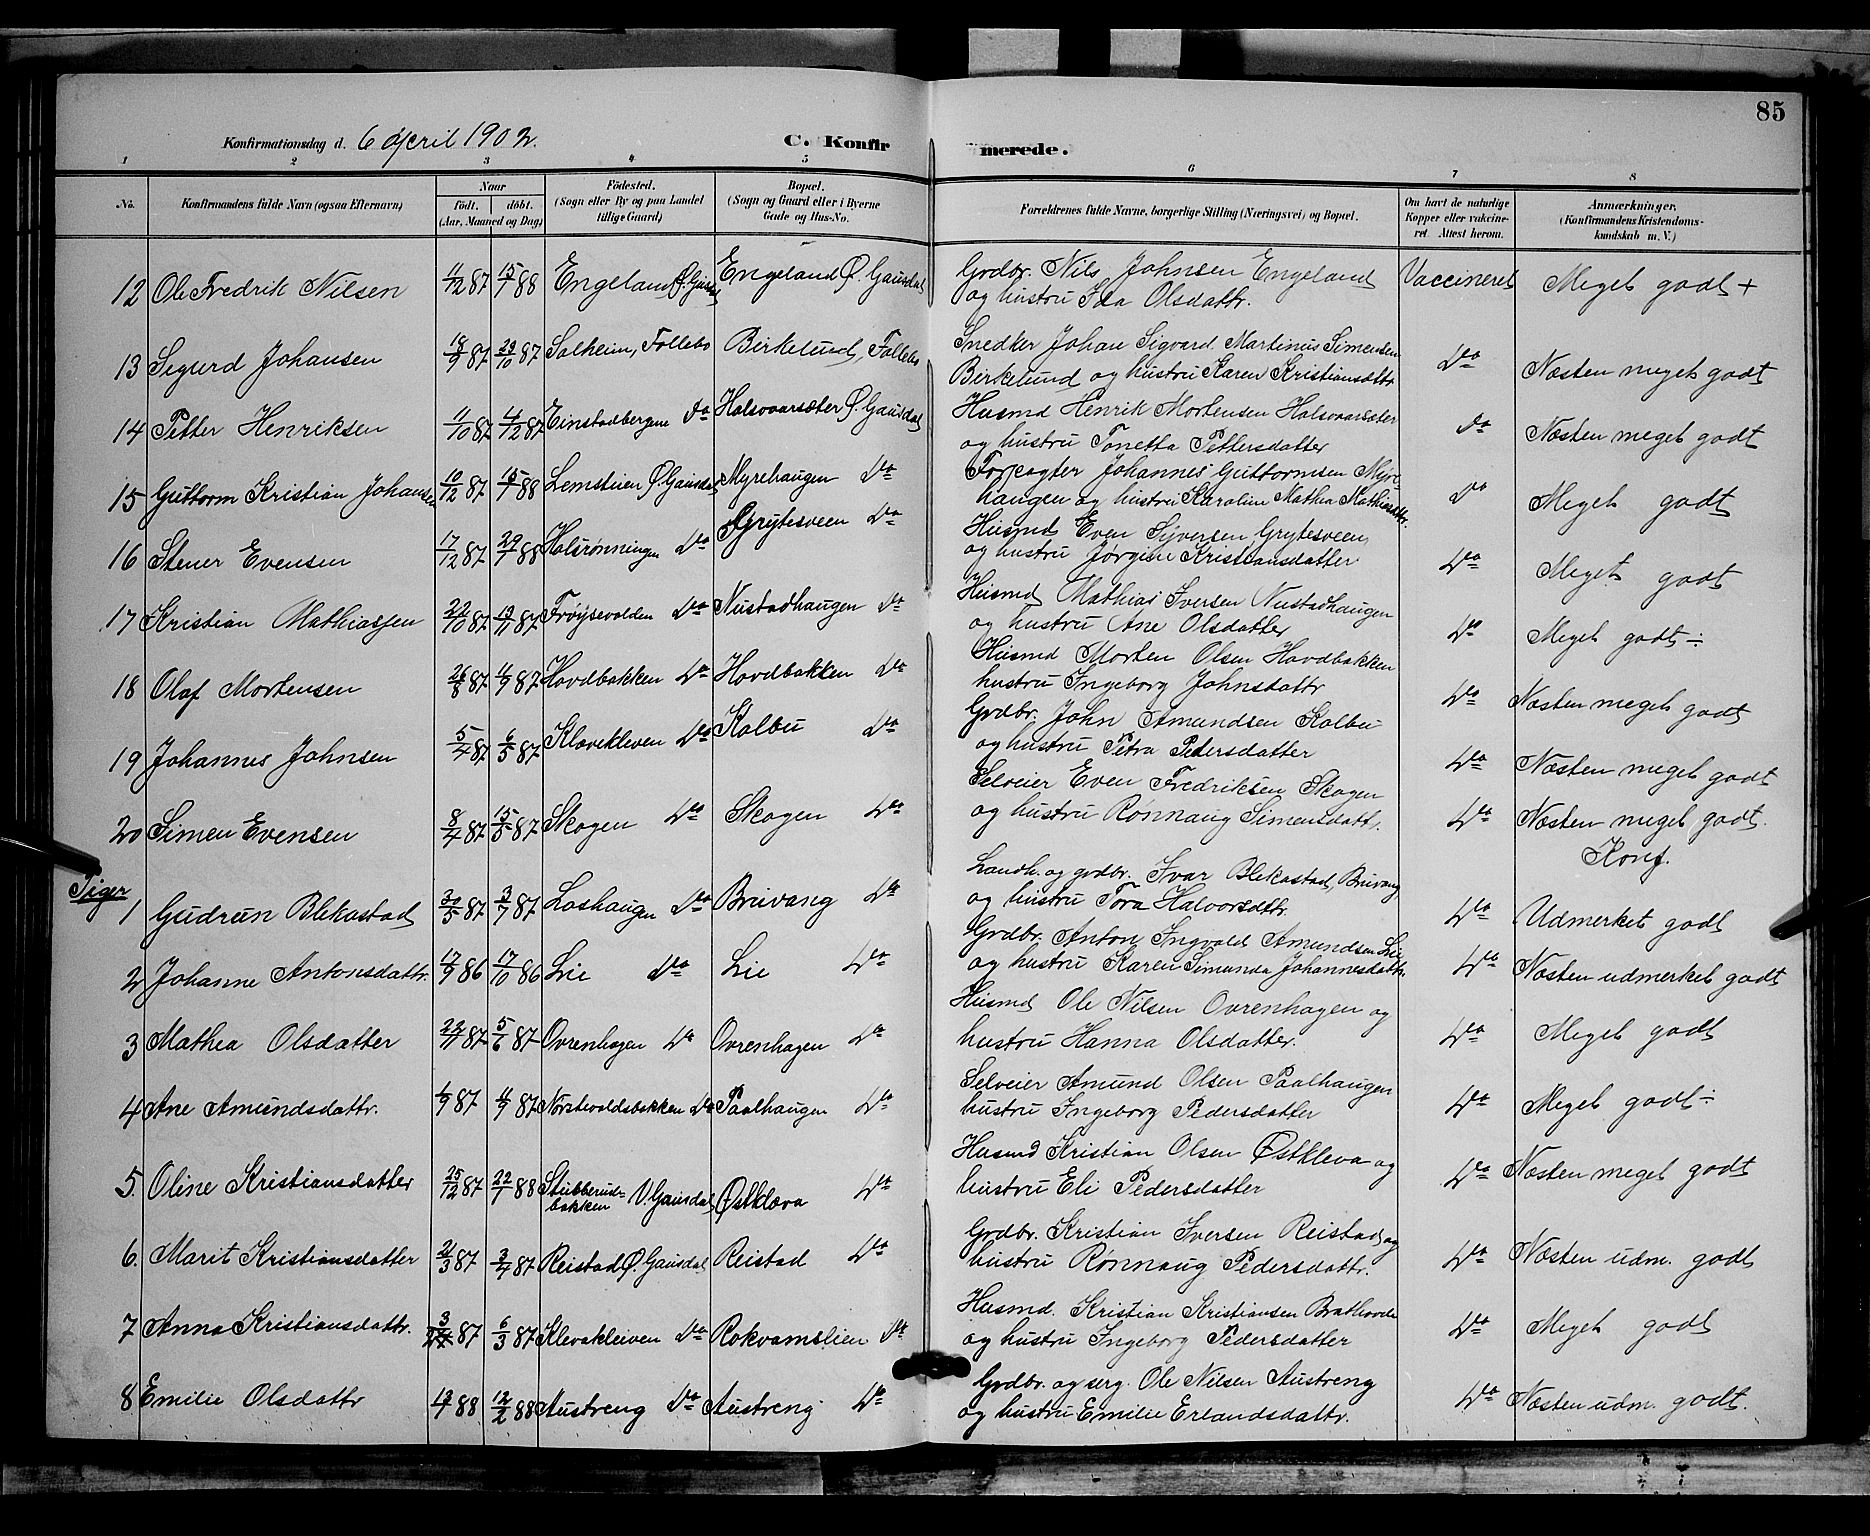 85
Konfirmationsdag d. 6 April 1902.
C. Konfirmerede.
1 2 3 4 5 6 7 8
No. Konfirmandens fulde Navn (ogsaa Efternavn) Naar født. døbt. (Aar, Maaned og Dag) Fødested. (Sogn eller By og paa Landet tillige Gaard) Bopæl. (Sogn og Gaard eller i Byerne Gade og Hus-No. Forældrenes fulde Navne, borgerlige Stilling (Næringsvei) og Bopæl. Om havt de naturlige Kopper eller vakcineret. Attest herom. Anmærkninger. (Konfirmandens Kristendomskundskab m. V.)
12 Ole Fredrik Nilsen 11/12 87 15/1 88 Engeland Ø. Gausd Engeland Ø. Gausdal Grdbr. Nils Johnsen Engeland Vaccineret Meget godt +
og hustru Ida Olsdattr.
13 Sigurd Johansen 18/9 87 29/10 87 Solheim, Follebo Birkelund, Follebo Snedker Johan Sigvard Martinus Simensen Do Næsten meget godt
Birkelund og hustru Karen Kristiansdttr
14 Petter Henriksen 11/10 87 4/12 87 Einstadbergene do Holsvaarsæter Ø. Gausdal Husmd Henrik Mortensen Holsvaarsæter do Næsten meget godt
og hustru Tonetta Pettersdatter
15 Guttorm Kristian Johansen 10/12 87 15/1 88 Lemstuen Ø. Gausdal Myrehaugen Do Forpagter Johannes Guttormsen Myre- do Meget godt
haugen og hustru Karoline Mathea Mathiasdttr.
16 Stener Evensen 17/12 87 29/1 88 Holsrønningen Do Grytesveen Do Husmd Even Syversen Grytesveen Do Meget godt
og hustru Jørgine Kristiansdatter
17 Kristian Mathiassen 22/10 87 13/11 87 Frøysevolden Do Nustadhaugen Do Husmd Mathias Iversen Nustadhaugen Do Meget godt ÷
og hustru Ane Olsdatter
18 Olaf Mortensen 26/8 87 11/9 87 Hovdbakken Do Hovdbakken Do Husmd Morten Olsen Hovdbakken Do Næsten meget godt
hustru Ingeborg Johnsdattr
19 Johannes Johnsen 5/4 87 6/5 87 Klevekleven Do Kolbu Do Grdbr. John Amundsen Kolbu Do Næsten meget godt
og hustru Petra Pedersdatter
20 Simen Evensen 8/4 87 15/5 87 Skogen Do Skogen Do Selveier Even Fredriksen Skogen Do Næsten meget godt.
og hustru Rønnaug Simensdattr. Konf.
Piger
1 Gudrun Blekastad 30/5 87 3/7 87 Loshaugen Do Bruvang Do Landh. og grdbr. Ivar Blekastad, Bruvang Do Udmerket godt
og hustru Tora Halvorsdttr.
2 Johanne Antonsdattr. 17/9 86 17/10 86 Lie Do Lie Do Grdbr. Anton Ingvald Amundsen Lie Do Næsten udmerket godt
og hustru Karen Simunda Johannesdattr.
3 Mathea Olsdatter 5/6 87 Ovrenhagen Do Ovrenhagen Do Husmd Ole Nilsen Ovrenhagen og Do Meget godt
hustru Hanna Olsdatter.
4 Ane Amundsdattr. 87 11/9 87 Norstevoldsbakken Do Paalhaugen Do Selveier Amund Olsen Paalhaugen Do Meget godt ÷
hustru Ingeborg Pedersdatter
5. Oline Kristiansdatter 25/12 87 22/1 88 Stubberud-bakken V. Gausdal Østkleva Do Husmd Kristian Olsen Østkleva og Do Næsten meget godt
hustru Eli Pedersdatter
6. Marit Kristiansdatter 21/3 87 3/4 87 Reistad Ø. Gausdal Reistad Do Grdbr. Kristian Iversen Reistad og Do Næsten udm. godt
hustru Rønnaug Pedersdattr.
7 Anna Kristiansdattr. 87 6/3 87 Klevakleiven Do Rokvamslien Do Husmd. Kristian Kristiansen Brathovde Do Meget godt
og hustru Ingeborg Pedersdatter
8 Emilie Olsdattr 88 12/2 88 Austreng Do Austreng Do Grdbr. og serg. Ole Nilsen Austreng Do Næsten udm. godt.
og hustru Emilie Erlandsdattr.